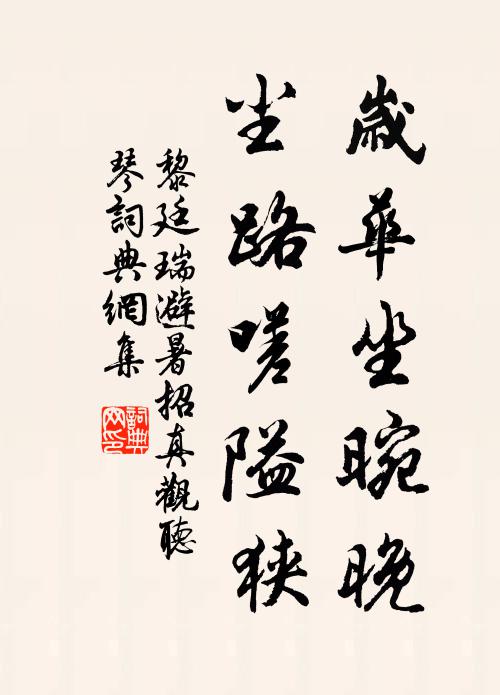 歲華坐晼晚
尘路嗟隘狹
黎廷瑞避暑招真觀聽
琴詞典網集
詞典网印